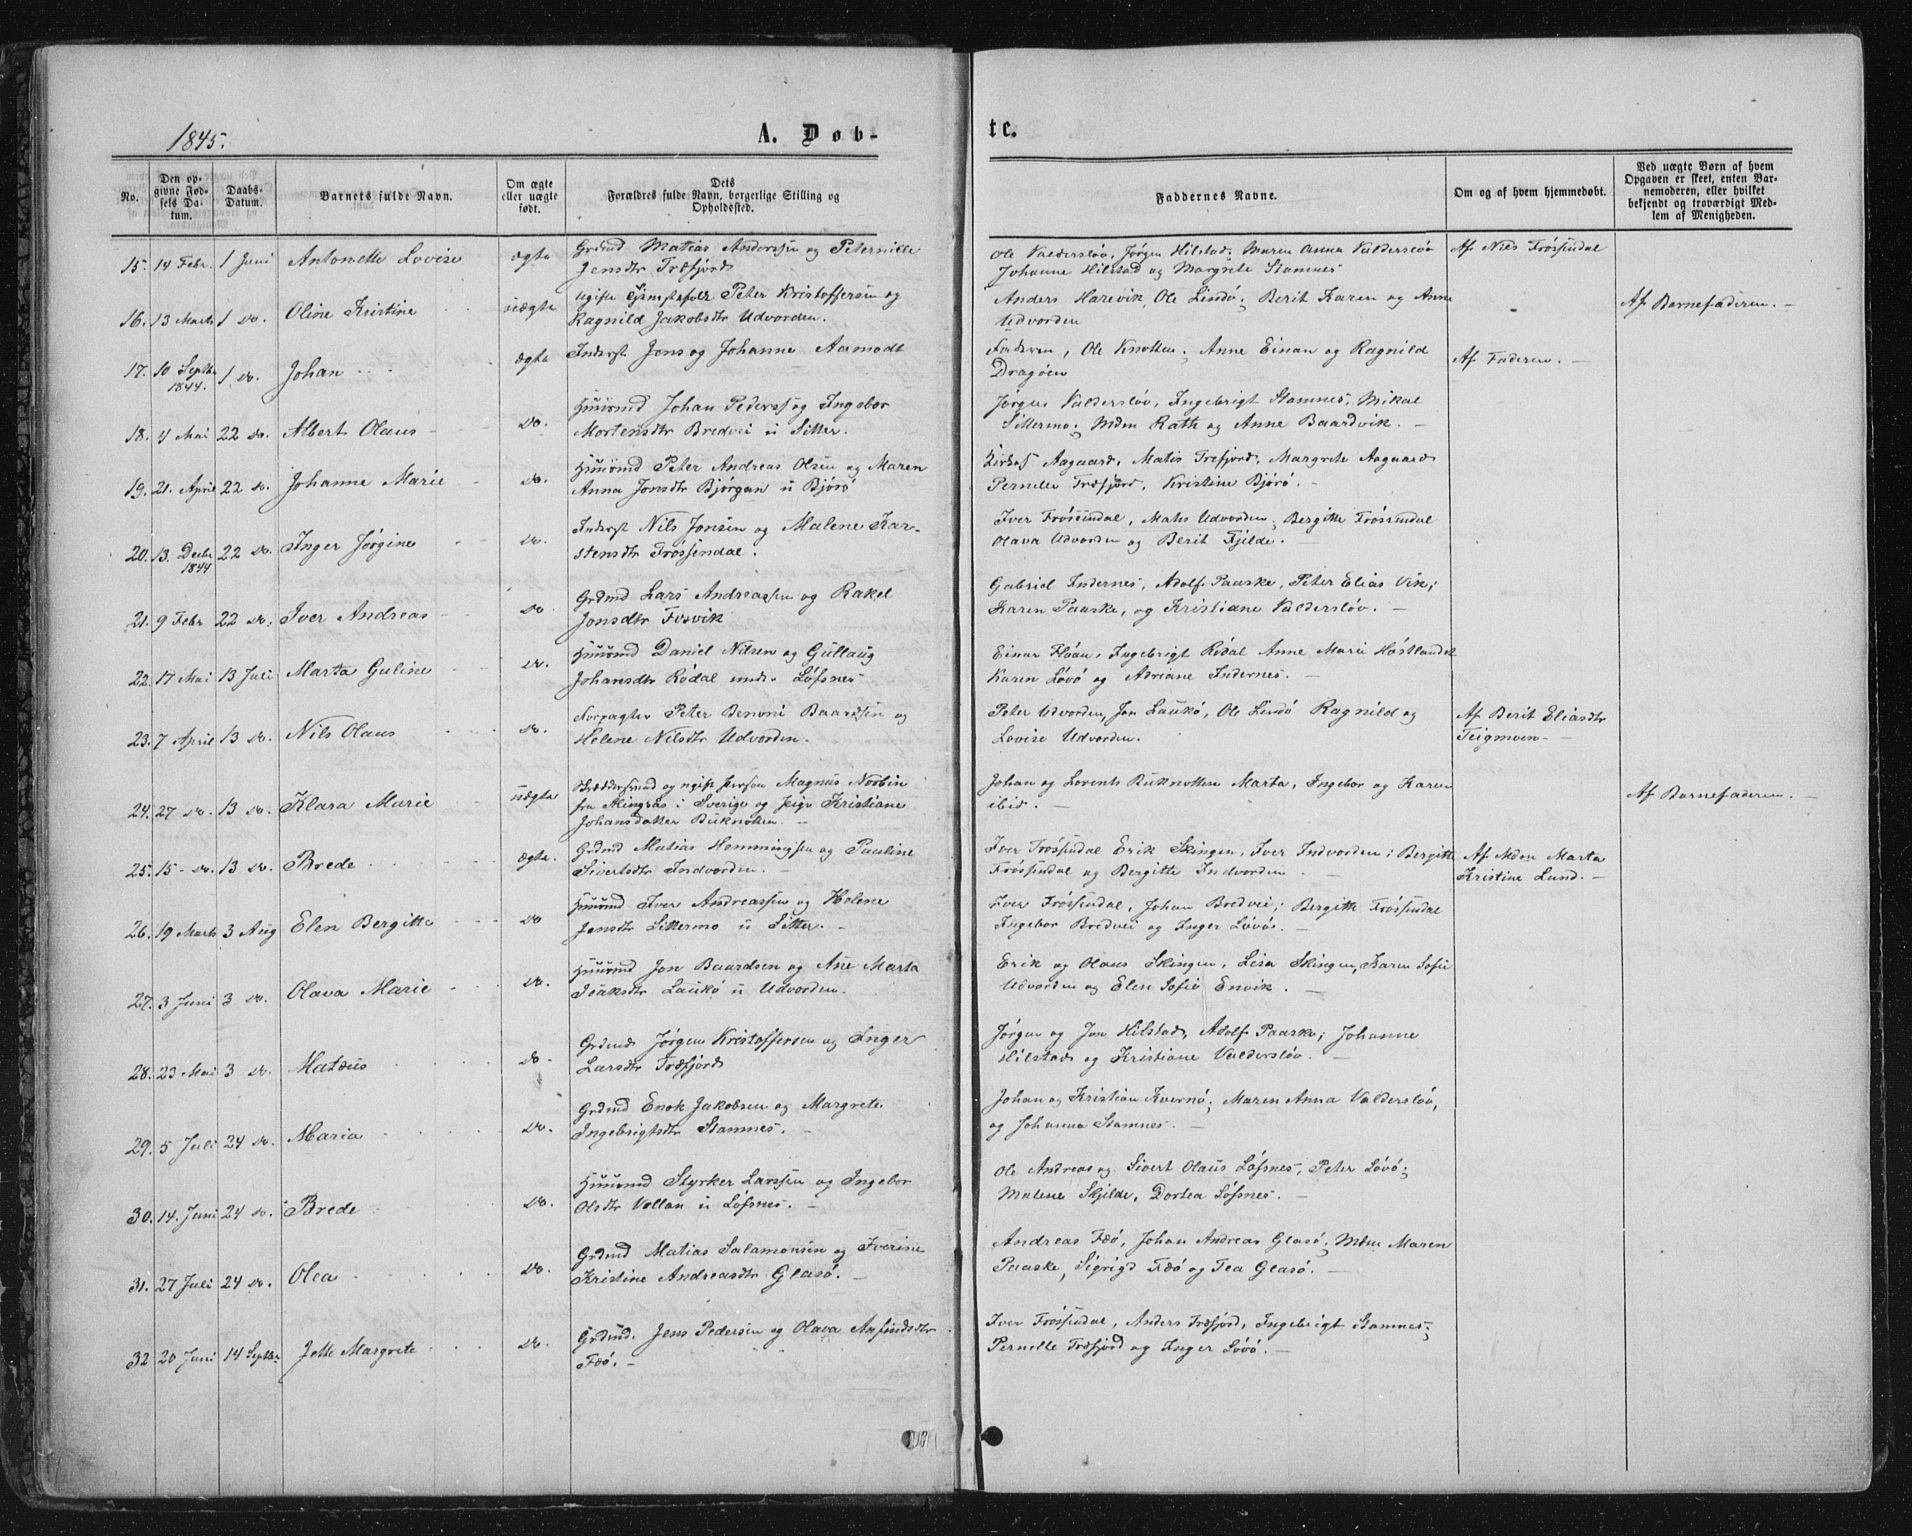 1845.
A. Døb-
te.
No.
Den op-
givne Fød-
sels Da-
tum.
Daabs-
Datum.
Barnets fulde Navn.
Om ægte
eller uægte
født.
Dets
Forældres fulde Navn, borgerlige Stilling og
Opholdssted.
Faddernes Navne.
Om og af hvem hjemmedøbt.
Ved uægte Børn af hvem
Opgaven er skeet, enten Bar-
nemoderen, eller hvilket
bekjendt og troværdigt Med-
lem af Menigheden.
15. 14 Febr. 1 Juni Antonette Lovise ægte Grdmd Matias Anderssen og Peternille
Jensdtr Træfjord
Ole Valdersløv, Jørgen Hilstad; Maren Anna Valdersløv
Johanne Hilstad og Margrete Stamnes
Af Niels Frøssendal
16. 13 Marts 1 do. Oline Kristine uægte Ugift Tjenstefolk Peter Kristoffersen og
Ragnild Jakobsdtr Udvorden.
Anders Harevik, Ole Lindø; Berit Karen og Anne
Udvorden
Af Barnefaderen. -
17. 10 Septbr 1844. 1 do. Johan ægte Inderst Jens og Johanne Aarmodt
Faderen, Ole Knotten. Anne Einan og Ragnild
Dragøen
Af Faderen. -
18. 4 Mai 22 do. Albert Olaus do. Huusmd Johan Pederss og Ingebor
Mortensdtr Bredvei u Sitter.
Jørgen Valdersløv, Ingebrigt Stamnes, Mikal
Sittermo; Mdm Rath og Anne Baardvik. -
19. 21. April 22 do. Johanne Marie do. Huusmd Peter Andreas Olsen og Maren
Anna Jonsdtr Bjørgan u Bjørø
Aagaard, Matis Trefjord, Margrete Aagaard
Pernelle Træfjord, Kristine Bjørø. -
20. 13. Decbr 1844 22 do. Inger Jørgine do. Inderst Nils Jonsen og Malene Kar-
stensdtr Frøssendal.
Iver Frøssendal, Mats Udvorden; Bergitte Frøssendal
Olava Udvorden og Berit Fjilde. -
21. 9 Febr 22 do. Iver Andreas do Grdmd Lars Andreassen og Rakel
Jonsdtr Fosvik
Gabriel Indernes, Adolf Paaske, Peter Elias Vik;
Karen Paaske, og Kristiane Valdersløv. -
22. 17 Mai 13 Juli Marta Guline do. Huusmd Daniel Nilsen og Gullaug
Johansdtr Rødal under Løfsnes
Einar Fløan, Ingebrigt Rødal Anne Marie Høstlandet
Karen Løvø og Adriane Indernes. -
23. 7 April 13 do. Nils Olaus do. Forpagter Peter Benoni Baardsen og
Helene Nilsdtr Udvorden.
Peter Udvorden, Jon Laukø, Ole Lindø Ragnild og
Lovise Udvorden.
Af Berit Eliasdtr
Teigmoen -
24. 27 do. 13 do. Klara Marie uægte og ugift Person Magnus Norbin
fra Alingsås i Sverige og Pige Kristiane
Johansdatter Buknotten. -
Johan og Lorents Buknotten Marta, Ingebor og Karen
ibid. -
Af Barnefaderen. -
25. 15 - do. 13 do. Brede ægte. Grdmd Matias Hemmingsen og Pauline
Sivertsdtr Indvorden. -
Iver Frøssendal Erik Skingen, Iver Indvorden; Bergitte
Frøssendal og Bergitte Indvorden
Af Mdm Marta
Kristine Lund. -
26. 19 Marts 3 Aug Elen Bergitte do Huusmd Iver Andreassen og Helene
Jensdtr Sittermo u Sitter. -
Iver Frøssendal, Johan Bredvei; Bergitte Frøssendal
Ingebor Bredvei og Inger Løvø. -
27. 3 Juni 3 do. Olava Marie do. Huusmd Jon Baardsen og Ane Marta
Isaksdtr Laukø u Udvorden. -
Erik og Olaus Skingen, Lisa Skingen, Karen Sofie
Udvorden og Elen Sofie Envik. -
28. 23 Mai 3 do. Matæus do. Grdmd Jørgen Kristoffersen og Inger
Larsdtr Træfjord
Jørgen og Jon Hilstad, Adolf Paaske; Johanne
Hilstad og Kristiane Valdersløv. -
29. 5 Juli 24 do. Maria do. Grdmd Enok Jakobsen og Margrete
Ingebrigtsdtr Stamnes. -
Johan og Kristian Kvernø; Maren Anna Valdersløv,
og Johanna Stamnes. -
30. 14. Juni 24 do. Brede do. Huusmd Styrker Larssen og Ingebor
Olsdtr Vollan u Løfsnes. -
Ole Andreas og Sivert Olaus Løfsnes, Peter Løvø;
Malene Skjilde, Dortea Løfsnes. -
31. 27 Juli 24 do. Olea do. Grdmd Matias Salamonsen og Iverine
Kristine Andreasdtr Glasø. -
Andreas Fæø, Johan Andreas Glasø; Mdm Maren
Paaske, Sigrigd Fæø og Tea Glasø. -
32 20 Juni 14 Septbr Jette Margrete do. Grdmd. Jens Pedersen og Olava Anfindsdtr
Fæø. -
Iver Frøssendal, Anders Træfjord, Ingebrigt Stamnes;
Pernelle Træfjord og Inger Løvø. -